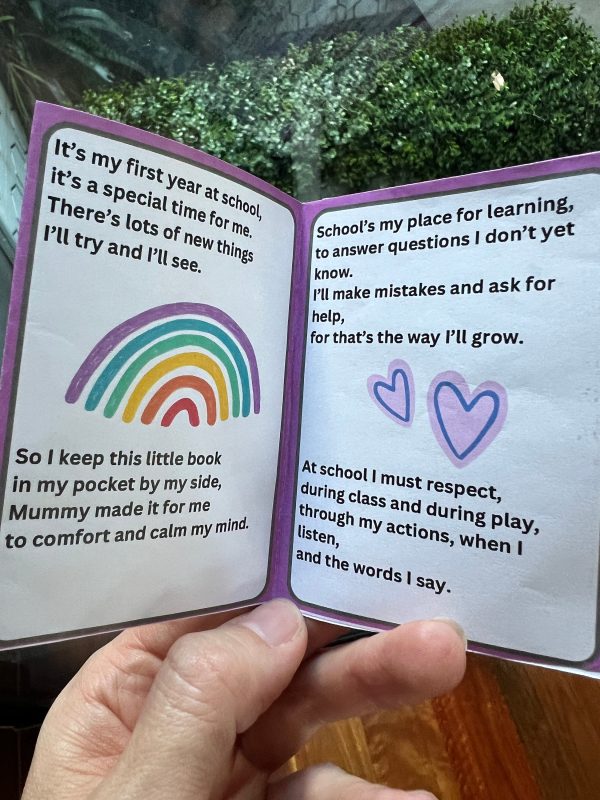 It's my first year at school,
it's a special time for me.
There's lots of new things
I'll try and I'll see.
So I keep this little book
in my pocket by my side,
Mummy made it for me
to comfort and calm my mind.
School's my place for learning,
to answer questions I don't yet
know.
I'll make mistakes and ask for
help,
for that's the way I'll grow.
At school I must respect,
during class and during play,
through my actions, when I
listen,
and the words I say.